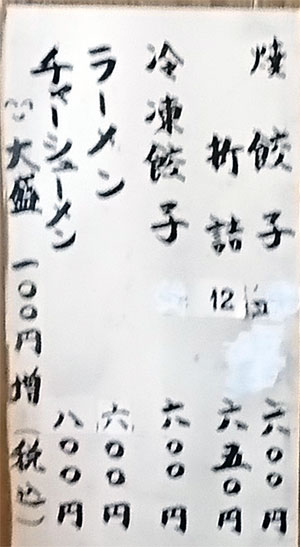 焼餃子 六〇〇円
折詰 六五〇円
12
冷凍餃子 六〇〇円
ラーメン 六〇〇円
チャーシューメン 八〇〇円
大盛 一〇〇円増(税込)